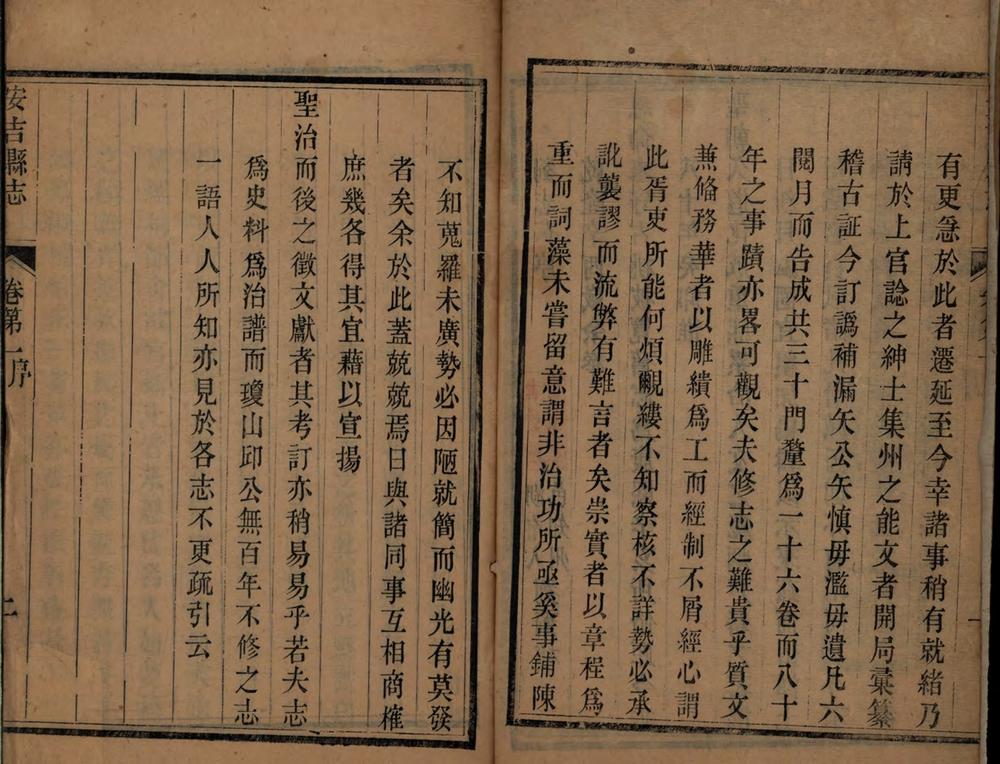 有更急於此者遷延至今幸諸事稍有就緒乃
請於上官諗之紳士集州之能文者開局彙纂
稽古証今訂譌補漏矢公矢慎毋濫毋遺凡六
閱月而告成共三十門釐為一十六卷而八十
年之事蹟亦畧可觀矣夫修志之難貴乎質文
蕪俻務華者以雕繢為工而經制不屑經心謂
此胥吏所能何煩覼縷不知察核不詳勢必承
訛襲謬而流弊有難言者矣崇實者以章程為
重而詞藻未嘗留意謂非治功所亟奚事鋪陳
不知蒐羅未廣勢必因陋就簡而幽光有莫發
者矣余於此蓋兢兢焉日與諸同事互相商榷
庶幾各得其宜藉以宣揚
聖治而後之徵文獻者其考訂亦稍易易乎若夫志
為史料為治譜而瓊山邱公無百年不修之志
一語人人所知亦見於各志不更疏引云
安吉縣志
卷第一序
二